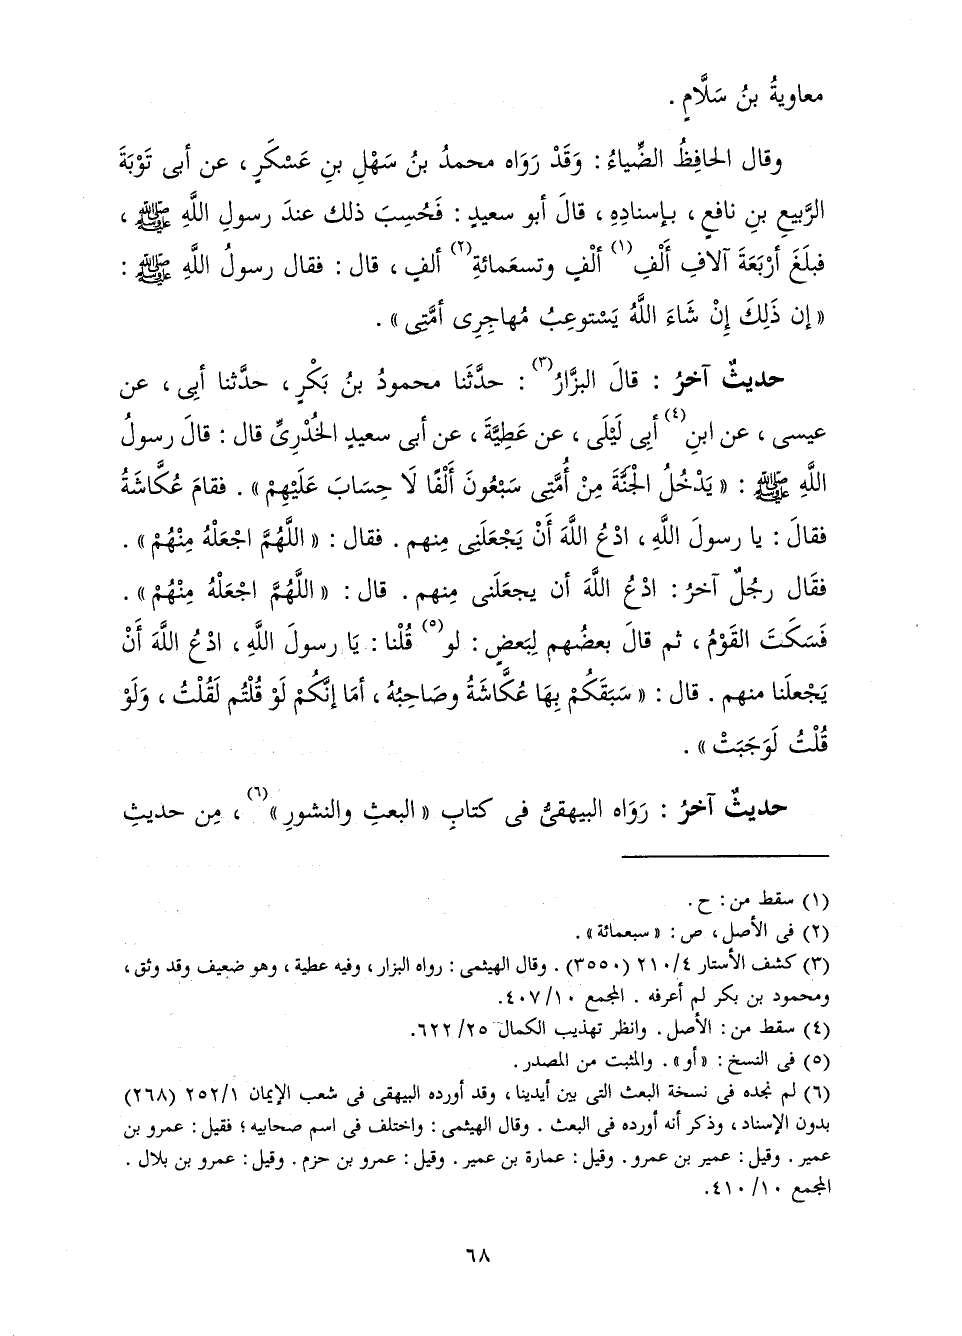 معاويةُ بنُ سَلَّامٍ .
وقال الحافِظُ الضِّياءُ : وَقَدْ رَوَاه محمدُ بنُ سَهْلِ بنِ عَسْكَرٍ ، عن أبى تَوْبَةَ
الرَّبيعِ بنِ نافعٍ ، بإسنادِهِ ، قالَ أبو سعيدٍ : فَحُسِبَ ذلك عندَ رسولِ اللَّهِ ﷺ ،
فبلَغَ أرْبَعَةَ آلافِ أَلْفِ(١) ألْفٍ وتسعَمائةِ(٢) ألفٍ ، قال : فقال رسولُ اللَّهِ ﷺ :
« إن ذَلِكَ إِنْ شَاءَ اللَّهُ يَسْتوعِبُ مُهاجِرِى أمَّتِى » .
حديثٌ آخرُ : قالَ البزَّارُ(٣) : حدَّثَنا محمودُ بنُ بَكْرٍ ، حدَّثنا أبِى ، عن
عيسى ، عن ابنِ(٤) أبِى لَيْلَى ، عن عَطِيَّةَ ، عن أبى سعيدٍ الخُدْرِىِّ قال : قالَ رسولُ
اللَّهِ ﷺ : « يَدْخُلُ الجَنَّةَ مِنْ أُمَّتِى سَبْعُونَ أَلْفًا لَا حِسَابَ عَلَيْهِمْ » . فقامَ عُكَّاشَةُ
فقالَ : يا رسولَ اللَّهِ ، ادْعُ اللَّهَ أَنْ يَجْعَلَنِى مِنهم . فقال : « اللَّهُمَّ اجْعَلْهُ مِنْهُمْ » .
فقَال رجُلٌ آخرُ : ادْعُ اللَّهَ أن يجعلَنى مِنهم . قال : « اللَّهُمَّ اجْعَلْهُ مِنْهُمْ » .
فَسَكَتَ القَوْمُ ، ثم قالَ بعضُهم لِبَعضٍ : لو(٥) قُلْنا : يَا رسولَ اللَّهِ ، ادْعُ اللَّهَ أَنْ
يَجْعلَنا منهم . قال : « سَبَقَكُمْ بِهَا عُكَّاشَةُ وصَاحِبُهُ ، أمَا إنَّكُمْ لَوْ قُلْتُم لَقُلْتُ ، وَلَوْ
قُلْتُ لَوَجَبَتْ » .
حديثٌ آخرُ : رَوَاه البيهقىُّ فى كتابِ « البعثِ والنشورِ »(٦) ، مِن حديثِ
(١) سقط من : ح .
(٢) فى الأصل ، ص : « سبعمائة » .
(٣) كشف الأستار ٤/ ٢١٠ (٣٥٥٠) . وقال الهيثمى : رواه البزار ، وفيه عطية ، وهو ضعيف وقد وثق ،
ومحمود بن بكر لم أعرفه . المجمع ١٠/ ٤٠٧.
(٤) سقط من : الأصل . وانظر تهذيب الكمال ٢٥/ ٦٢٢.
(٥) فى النسخ : « أو » . والمثبت من المصدر .
(٦) لم نجده فى نسخة البعث التى بين أيدينا ، وقد أورده البيهقى فى شعب الإيمان ١/ ٢٥٢ (٢٦٨)
بدون الإسناد ، وذكر أنه أورده فى البعث . وقال الهيثمى : واختلف فى اسم صحابيه ؛ فقيل : عمرو بن
عمير . وقيل : عمير بن عمرو . وقيل : عمارة بن عمير . وقيل : عمرو بن حزم . وقيل : عمرو بن بلال .
المجمع ١٠/ ٤١٠.
٦٨